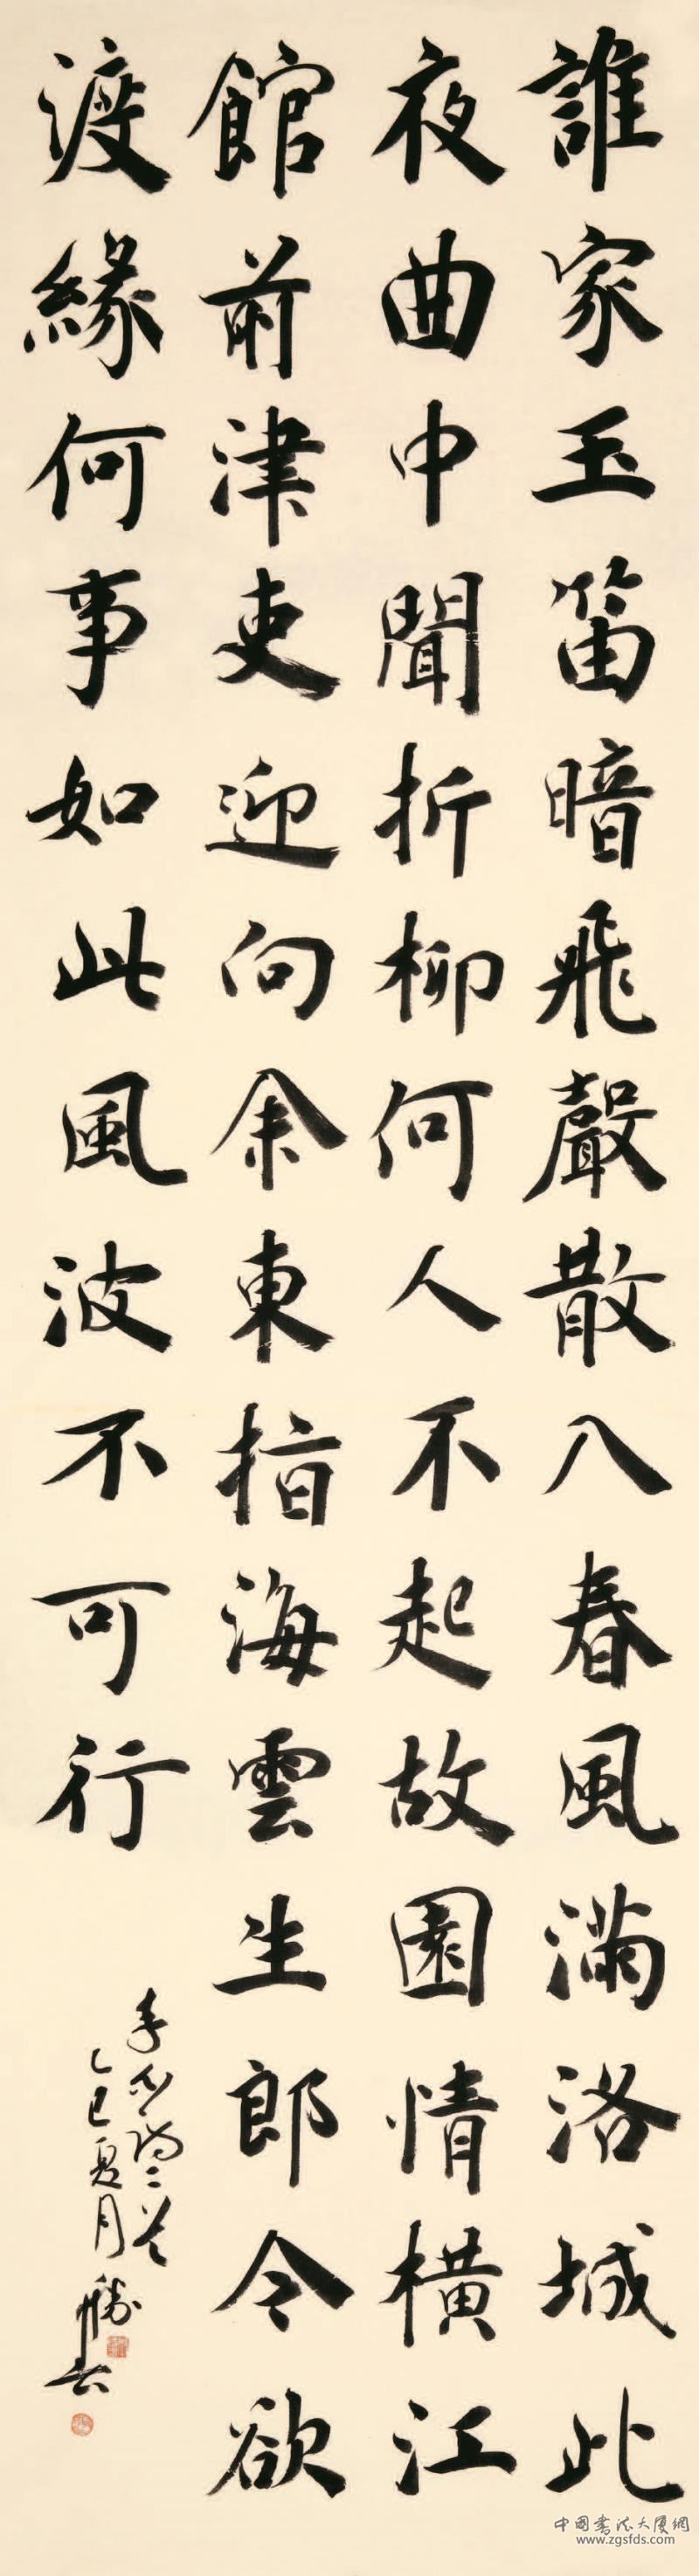 誰家玉笛暗飛聲散入春風滿洛城此
夜曲中聞折柳何人不起故園情橫江
館前津吏迎向余東指海雲生郎今欲
渡緣何事如此風波不可行
李白詩二首
乙巳夏月
中国书法大厦網
www.zgsfds.com